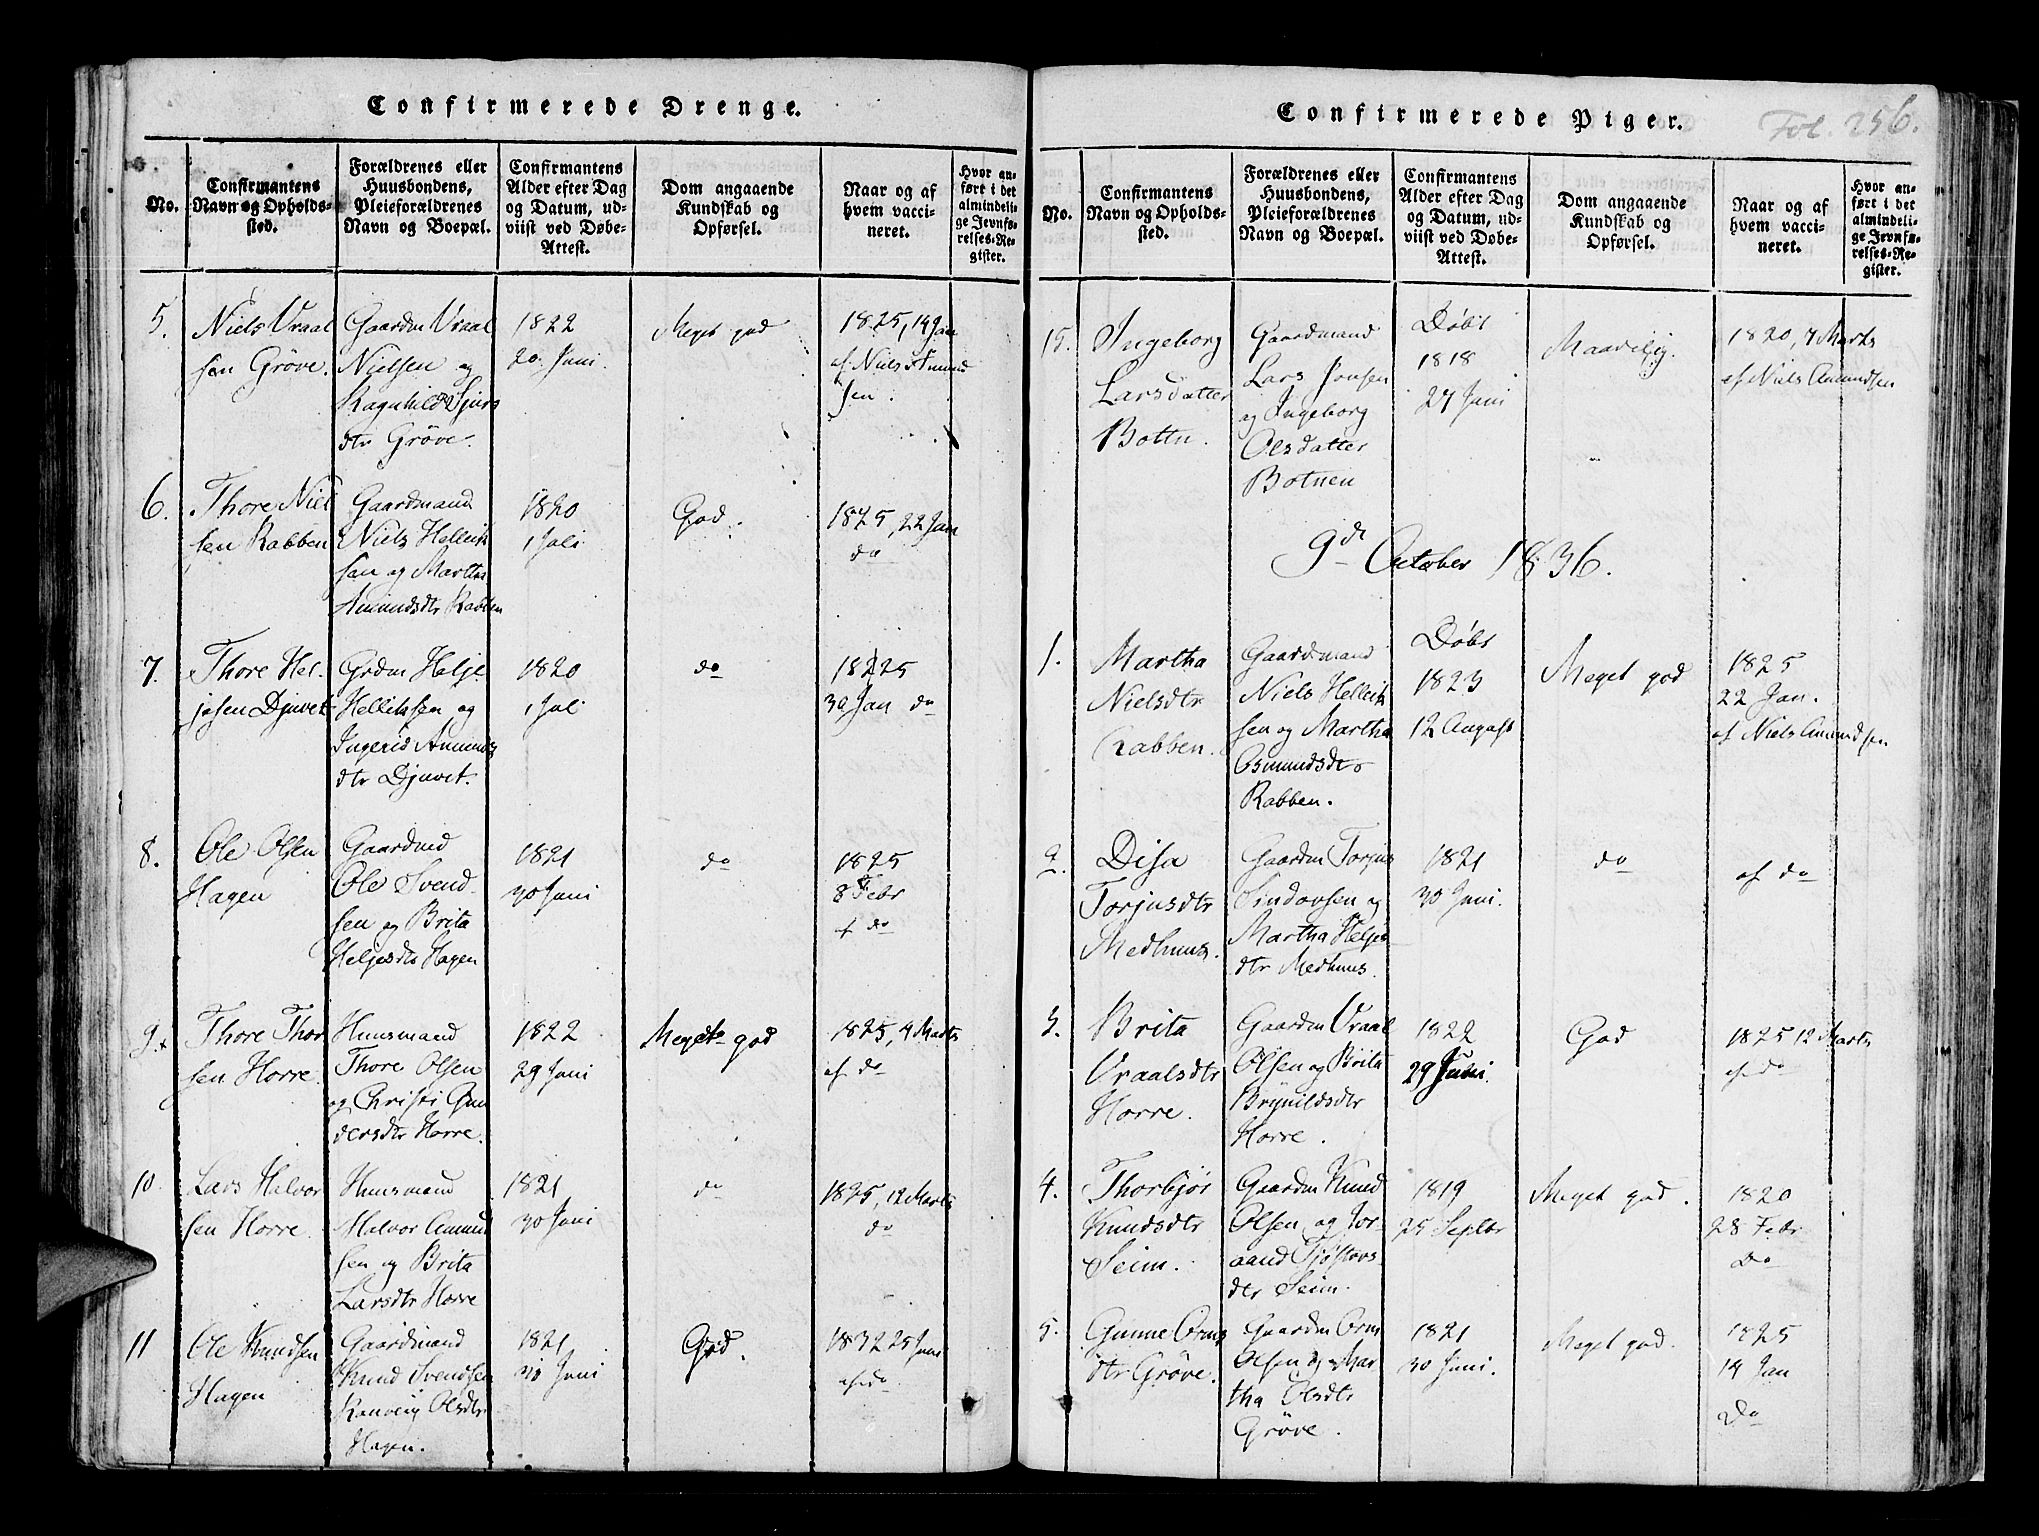 Confirmerede Drenge.
No.
Confirmantens
Navn og Opholds-
sted.
Forældrenes eller
Huusbondens,
Pleieforældrenes
Navn og Boepæl.
Confirmantens
Alder efter Dag
og Datum, ud-
viist ved Døbe-
Attest.
Dom angaaende
Kundskab og
Opførsel.
Naar og af
hvem vacci-
neret.
Hvor an-
ført i det
almindeli-
ge Jevnfø-
relses-Re-
gister.
5.
Niels Vraal
sen Gröve.
Gaardm Vraal
Nielsen og
Ragnhild Sjurs
dtr Gröve.
1822
20. Juni.
Meget god
1825, 14 Jan
af Niels Amund
sen.
6.
Thore Niel
sen Rabben
Gaardmand
Niels Hellik
sen og Martha
Amundsdtr Rabben
1820
1 Juli
God.
1825, 22 Jan
do
7.
Thore Hel-
jesen Djuvet
Grdm Helje
Helliksen og
Ingerid Amunds
dtr Djuvet.
1820
1 Jul
do
1825
30 Jan do
8.
Ole Olsen
Hagen
Gaardmd
Ole Svend-
sen og Brita
Heljesdtr Hagen
1821
30 Juni
do
1825
8 Febr
af do
9.
Thore Thor
sen Horre.
Huusmand
Thore Olsen
og Christi Gun
dersdtr Horre.
1822
29 Juni
Meget god
1825, 4 Marts
af do
10.
Lars Halvor
sen Horre.
Huusmand
Halvor Amund
sen og Brita
Larsdtr Horre
1821
30 Juni
do
1825, 12 Marts
do
11
Ole Knudsen
Hagen
Gaardmand
Knud Svendsen
Ranveig Olsdtr
Hagen.
1821
30 Juni
God.
1832 25 Juni
af do
Confirmerede Piger.
Fol. 256.
No.
Confirmantens
Navn og Opholds-
sted.
Forældrenes eller
Huusbondens,
Pleieforældrenes
Navn og Boepæl.
Confirmantens
Alder efter Dag
og Datum, ud-
viist ved Døbe-
Attest.
Dom angaaende
Kundskab og
Opførsel.
Naar og af
hvem vacci-
neret.
Hvor an-
ført i det
almindeli-
ge Jevnfø-
relses-Re-
gister.
15.
Ingeborg
Larsdatter
Bottn.
Gaardmand
Lars Jonsen
og Ingeborg
Olsdatter
Botnen
Döbt
1818
27 Juni
Maadelig.
1820, 7 Marts
af Niels Amundsen
9de October 1836.
1.
Martha
Nielsdtr
Rabben.
Gaardmand
Niels Hellik
sen og Martha
Osmundsdtr
Rabben.
Döbt
1823
12 August
Meget god
1825
22 Jan.
af Niels Amundsen
2.
Disa
Torjusdtr
Medhuus.
Gaardm Torjus
Sindovsen og
Martha Heljes
dtr Medhuus.
1821
30 Juni.
do
af do
3.
Brita
Vraalsdtr
Horre.
Gaardm Vraal
Olsen og Brita
Brynildsdtr
Horre.
1822
29 Juni.
God
1825 12 Marts
af do
4.
Thorbjör
Knudsdtr
Seim.
Gaardm Knud
Olsen og Jor-
aand Tjöstovs
dtr Seim.
1819
25 Septbr
Meget god.
1820
28 Febr
Do
5.
Gunne Orms
dtr Gröve.
Gaardm Orm
Olsen og Mar
tha Olsdtr
Gröve.
1821
30 Juni.
Meget god.
1825
14 Jan
Do